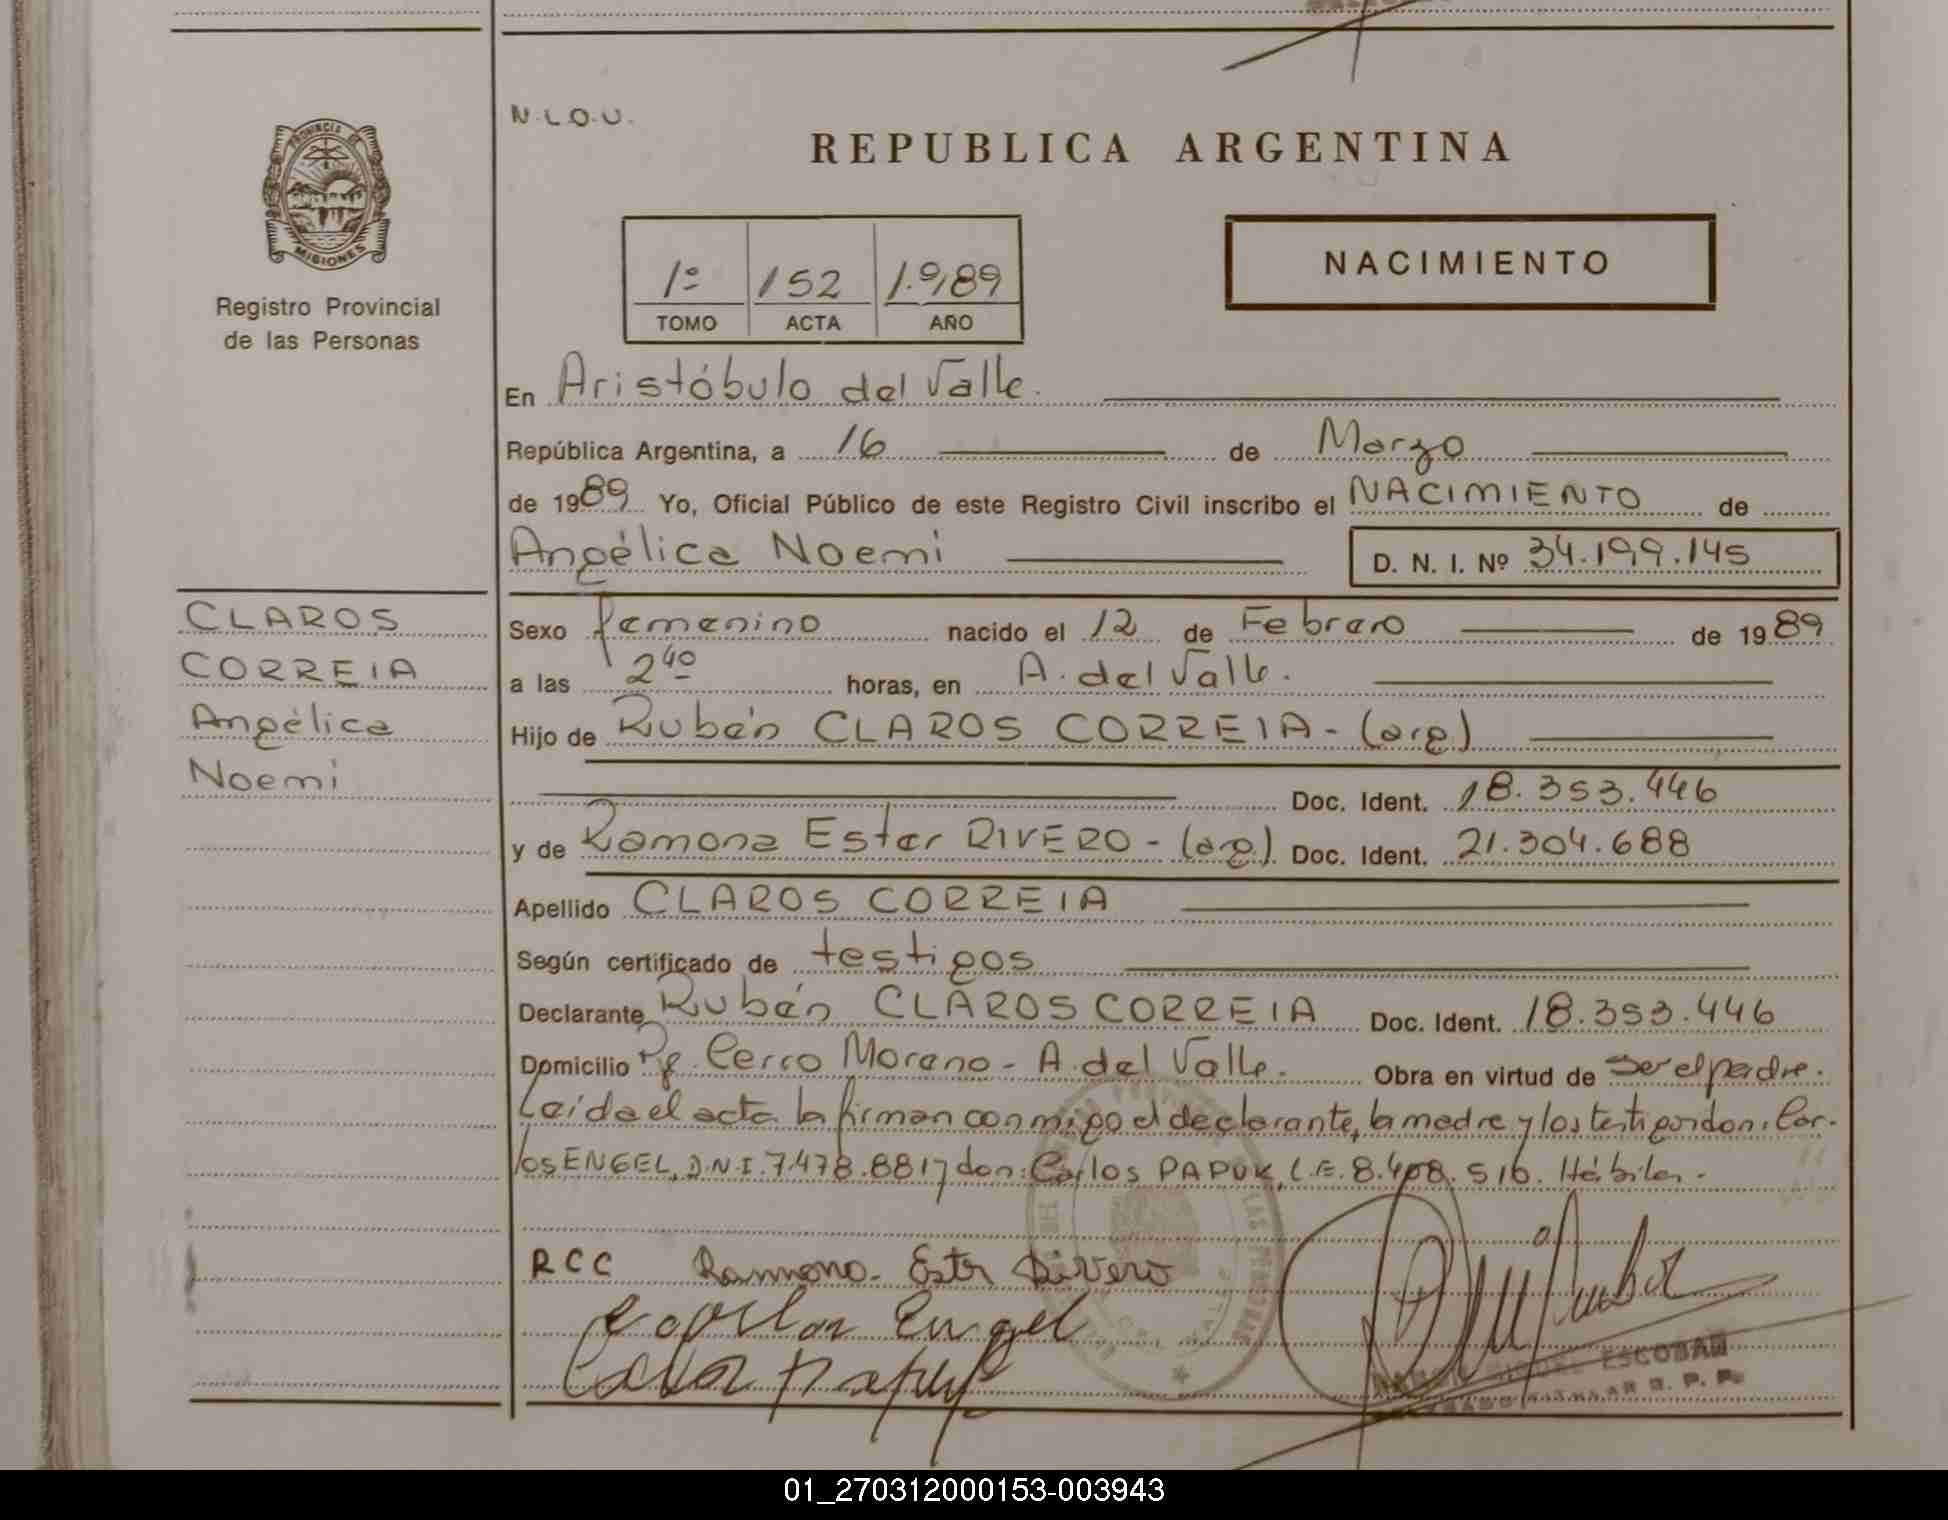 N.L.O.U.
REPUBLICA ARGENTINA
PROVINCIA DE
MISIONES
Registro Provincial
de las Personas
1º 152 1.989
TOMO ACTA AÑO
NACIMIENTO
En Aristóbulo del Valle.
República Argentina, a 16 de Marzo
de 1989 Yo, Oficial Público de este Registro Civil inscribo el NACIMIENTO de
Angélica Noemi D. N. I. Nº 34.199.145
CLAROS
CORREIA
Angélica
Noemi
Sexo femenino nacido el 12 de Febrero de 1989
a las 2 40 horas, en A. del Valle.
Hijo de Rubén CLAROS CORREIA - (arg)
Doc. Ident. 18.353.446
y de Ramona Ester RIVERO - (arg.) Doc. Ident. 21.304.688
Apellido CLAROS CORREIA
Según certificado de testigos
Declarante Rubén CLAROS CORREIA Doc. Ident. 18.353.446
Domicilio Pje. Cerro Moreno - A. del Valle. Obra en virtud de ser el padre.
Leída el acta la firman conmigo el declarante, la madre y los testigos don: Car-
los ENGEL, D.N.I. 7.478.881 y don: Carlos PAPUK, L.E. 8.408.516. Hábiles.-
RCC Ramona Ester Rivero
Carlos Engel
MIGUEL ESCOBAR
R. P. P.
01_270312000153-003943